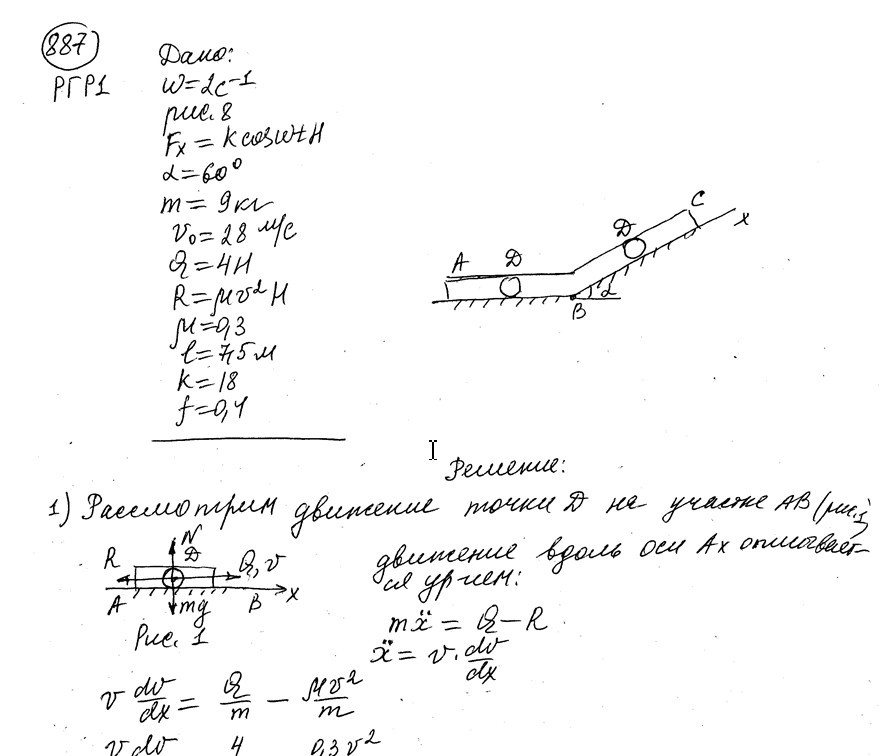 887
РГР1
Дано:
ω=2c⁻¹
рис. 8
Fx = k cosωt H
α=60°
m = 9кг
v₀=28 м/с
Q=4H
R=μv²H
μ=0,3
l=7,5м
k=18
f=0,1
A D B α D C x
Решение:
1) Рассмотрим движение точки D на участке AB (рис.1),
движение вдоль оси Ax описывает-
ся ур-ием:
R N D Q, v
A mg B x
Рис. 1
mẍ = Q – R
ẍ = v · dv/dx
v dv/dx = Q/m – μv²/m
v dv 4 0,3v²